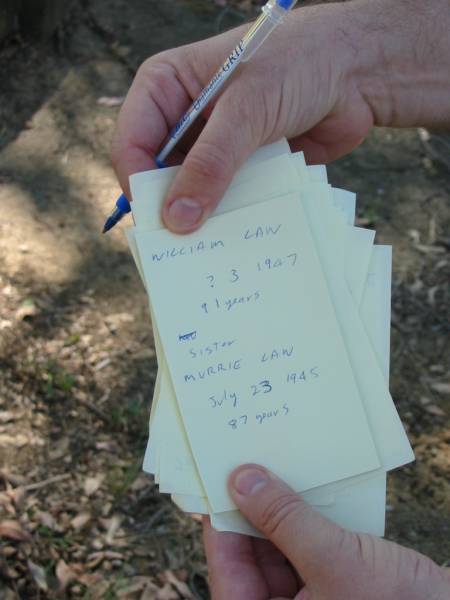 WILLIAM LAW
? 3 1947
91 years
SISTER
MURRIE LAW
July 23 1945
87 years
GRIP